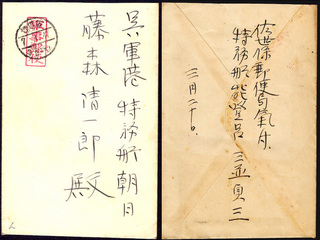 呉軍港 特務艦 朝日
藤森清一郎殿
佐世保郵便局気付
特務艦
三並貞三
三月二十日